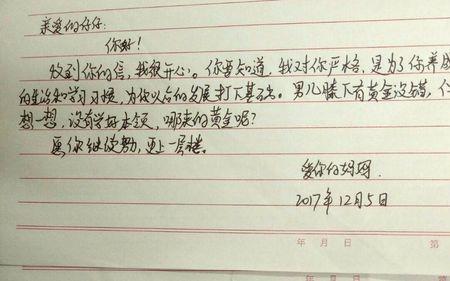 亲爱的仔仔:
你好!
收到你的信,我很开心。你要知道,我对你严格,是为了你养成
的生活和学习习惯,为你以后的发展打下基石。男儿膝下有黄金没错,仔
想一想,没有学好本领,哪来的黄金呢?
愿你继续努,更上一层楼。
爱你的妈妈
2017年12月5日
年 月 日 第
年 月 日